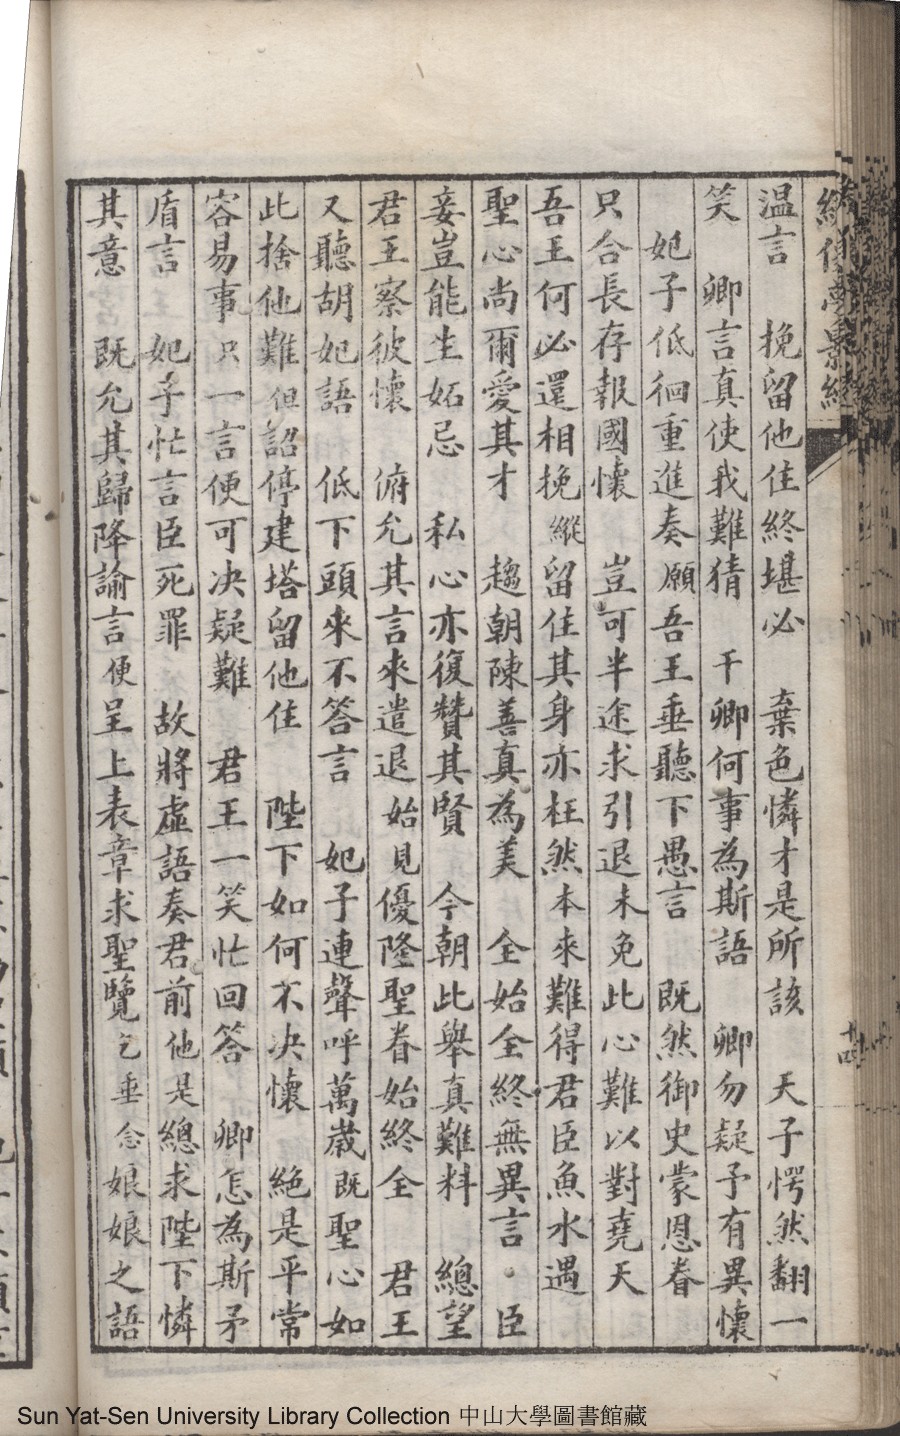 温言　挽留他住終堪必　棄色憐才是所該　天子愕然翻一
笑　卿言真使我難猜　干卿何事為斯語　卿勿疑予有異懷
妃子低徊重進奏願吾王垂聽下愚言　既然御史蒙恩眷
只合長存報國懷　豈可半途求引退未免此心難以對堯天
吾王何必還相挽縱留住其身亦枉然本來難得君臣魚水遇
聖心尚爾愛其才　趨朝陳善真為美　全始全終無異言。臣
妾豈能生妬忌　私心亦復贊其賢　今朝此舉真難料　總望
君王察彼懷　俯允其言來遣退始見優隆聖眷始終全　君王
又聽胡妃語　低下頭來不答言　妃子連聲呼萬歲既聖心如
此捨他難但詔停建塔留他住　陛下如何不決懷　絕是平常
容易事只一言便可決疑難　君王一笑忙回答　卿怎為斯矛
盾言　妃子忙言臣死罪　故將虛語奏君前他是總求陛下憐
其意　既允其歸降諭言便呈上表章求聖覽乞垂念娘娘之語
十四
Sun Yat-Sen University Library Collection 中山大學圖書館藏